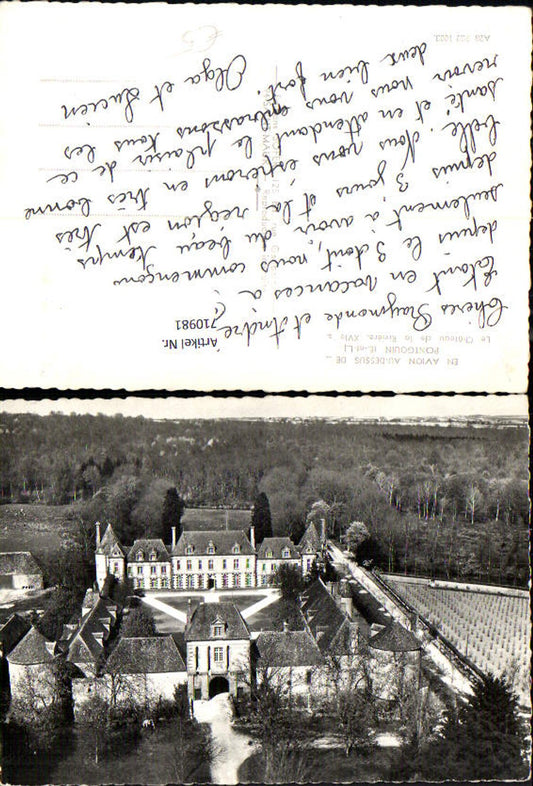 EN AVION AU-DESSUS DE ...
PONTGOUIN (E.-et-L.)
Le Château de la Rivière, XVIe s.
Artikel Nr.
710981
Chères Raymonde et Andrée
Etant en vacances à
depuis le 3 août, nous commençons
seulement à avoir du beau temps
depuis 3 jours et la région est très
belle. Nous espérons en très bonne
santé et en attendant le plaisir de ce
revoir nous vous embrassons tous les
deux bien fort.
Olga et Lucien